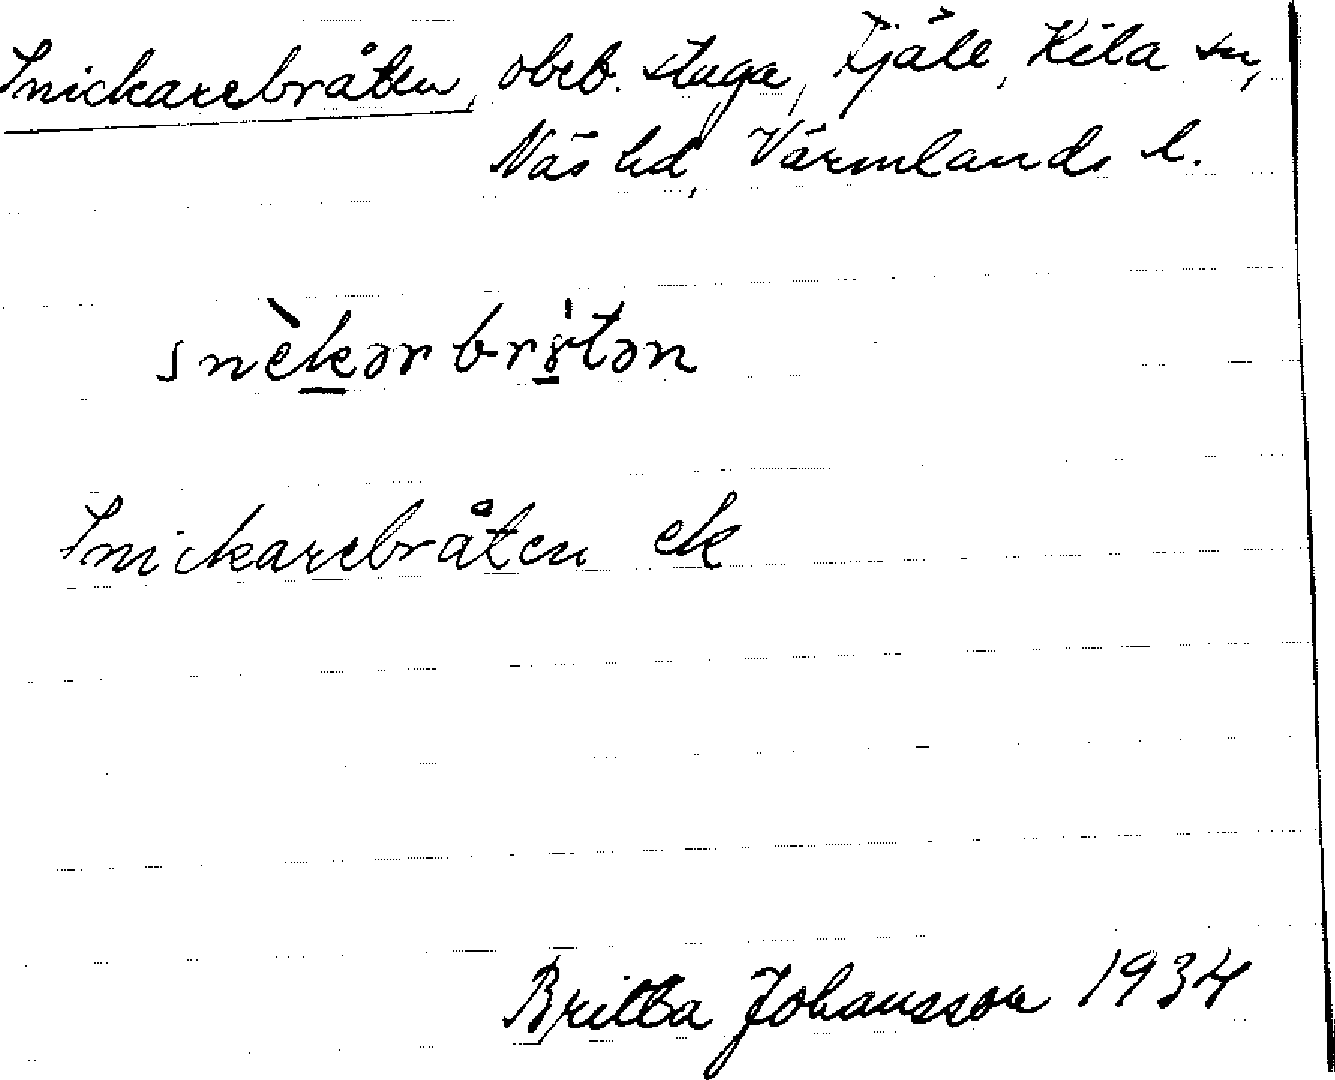 Snickarebråten, obeb. stuga, Fjäle, Kila sn,
Näs hd, Värmlands l.
snèkər brɤ̍tən
Snickarebråten ek
Britta Johansson 1934